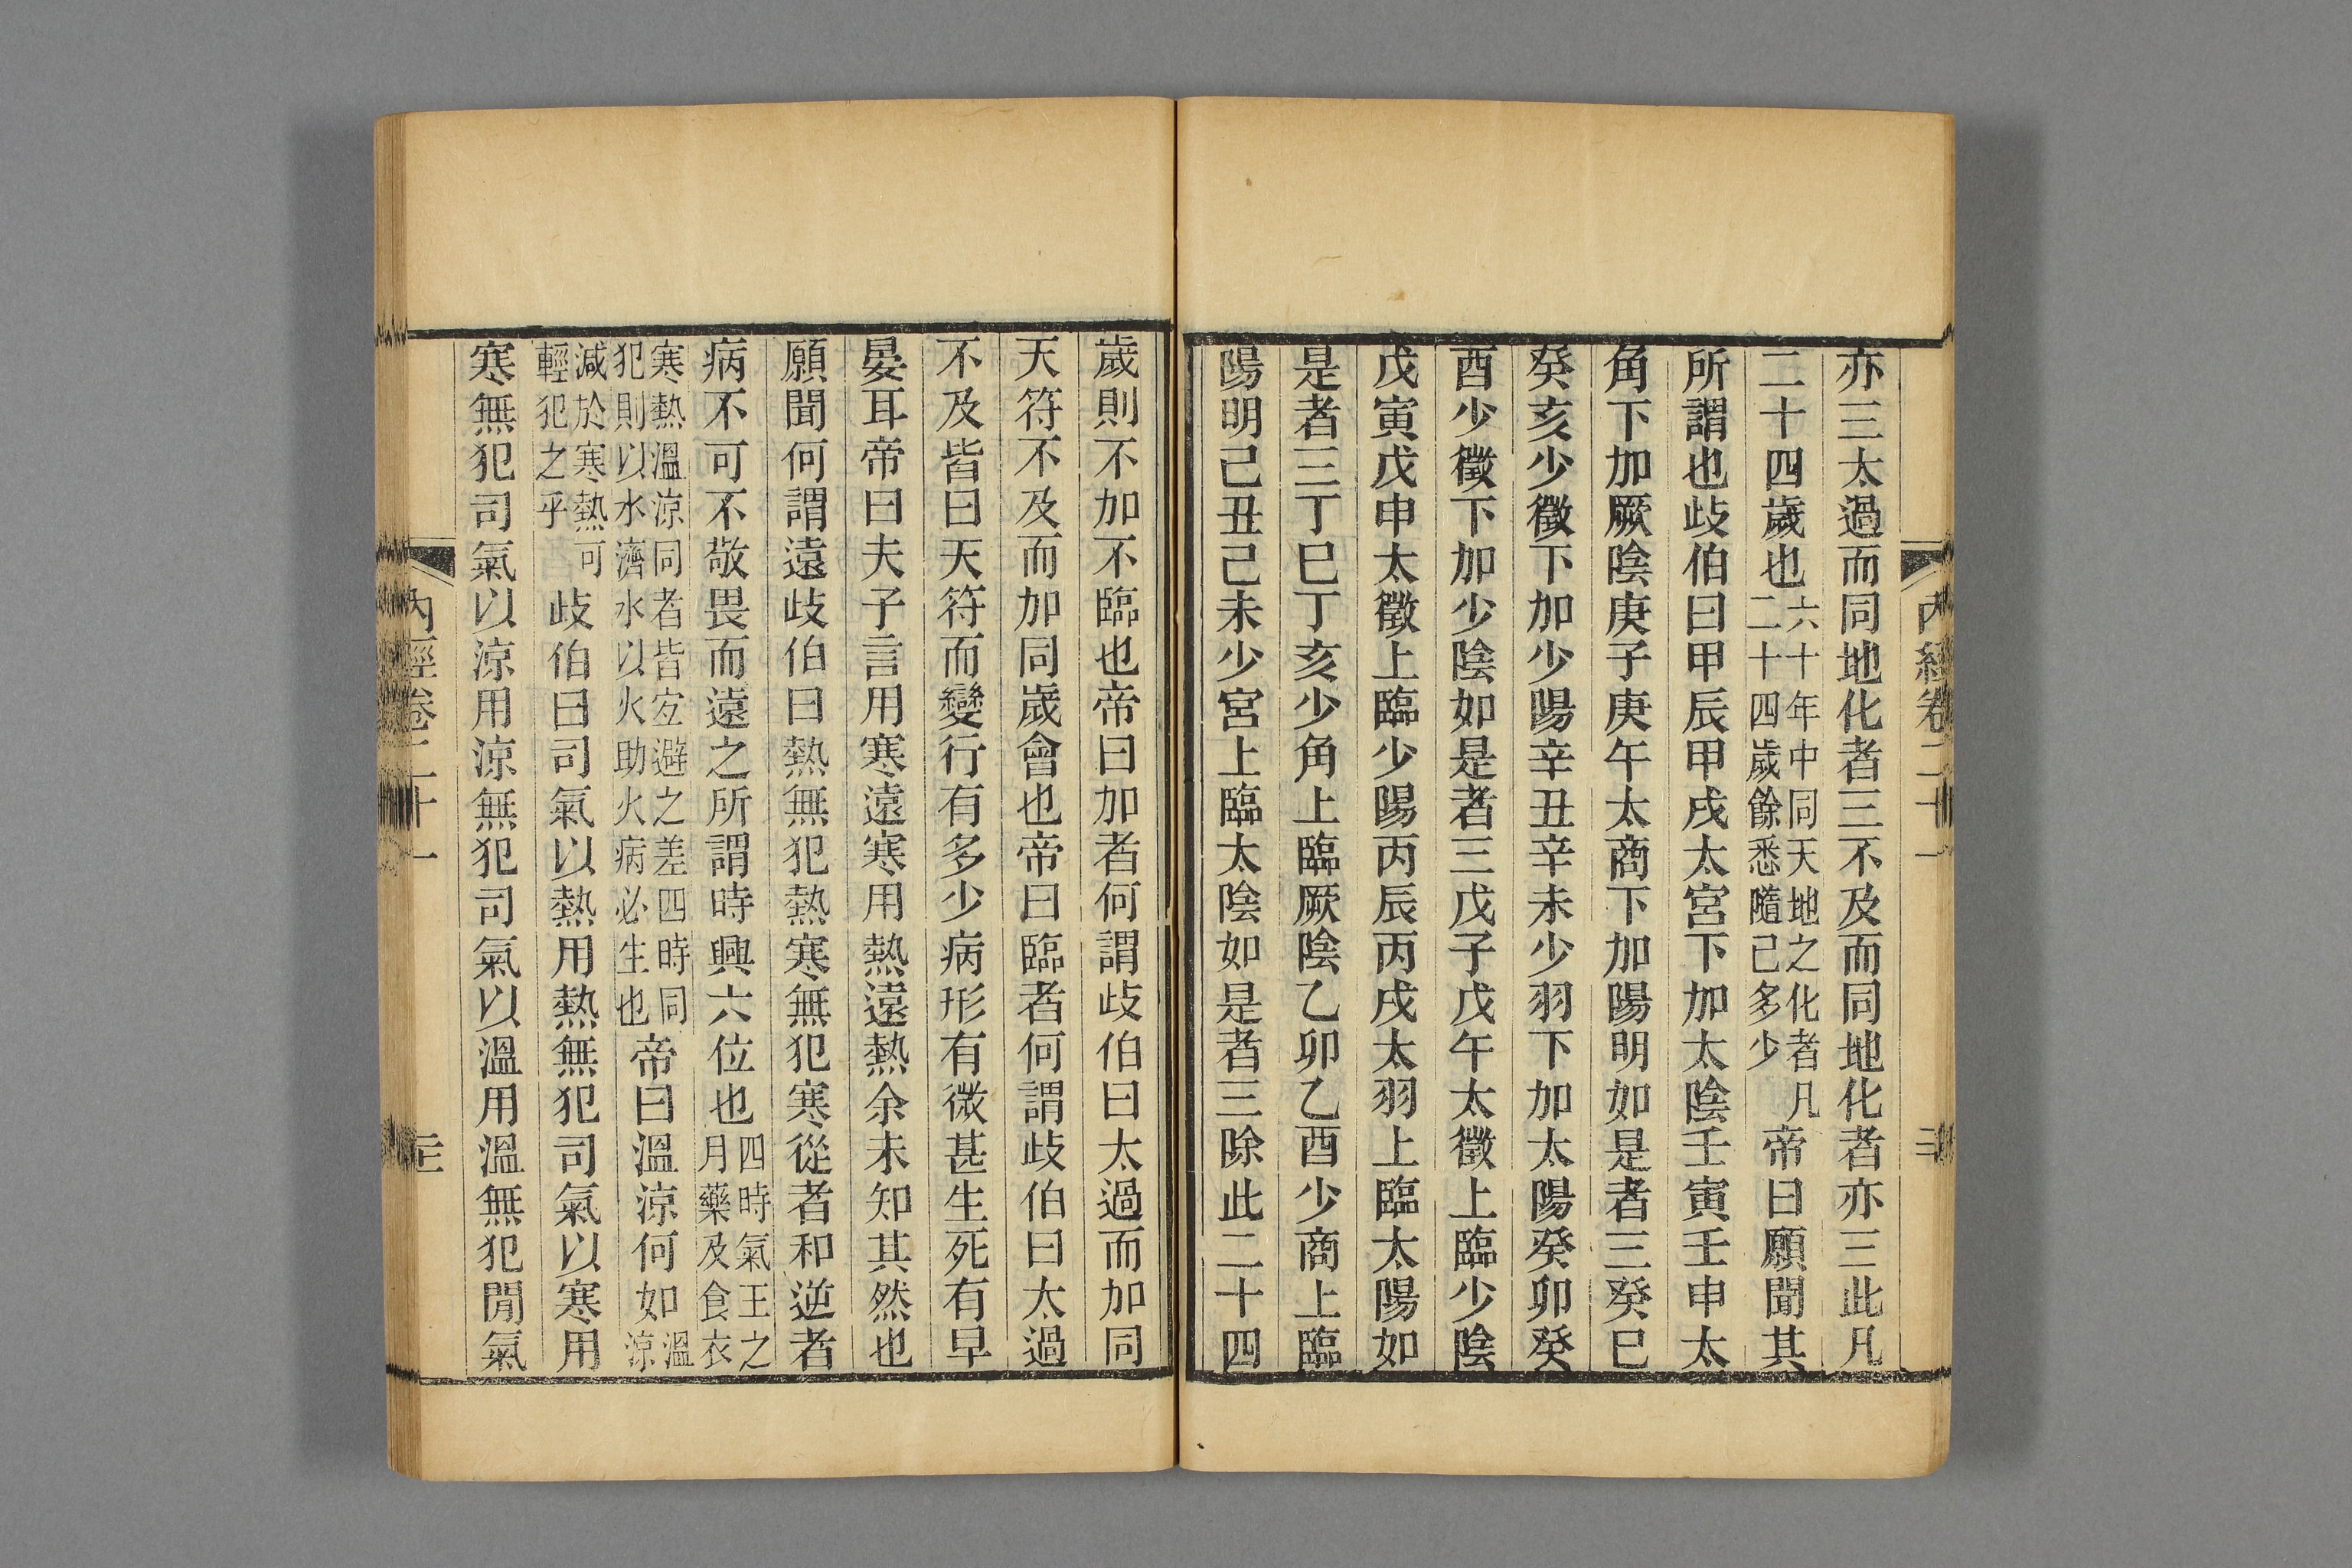 內經卷二十一
亦三太過而同地化者三不及而同地化者亦三此凡
二十四歲也六十年中同天地之化者凡二十四歲餘悉隨己多少帝曰願聞其
所謂也歧伯曰甲辰甲戌太宮下加太陰壬寅壬申太
角下加厥陰庚子庚午太商下加陽明如是者三癸巳
癸亥少徵下加少陽辛丑辛未少羽下加太陽癸卯癸
酉少徵下加少陰如是者三戊子戊午太徵上臨少陰
戊寅戊申太徵上臨少陽丙辰丙戌太羽上臨太陽如
是者三丁巳丁亥少角上臨厥陰乙卯乙酉少商上臨
陽明己丑己未少宮上臨太陰如是者三除此二十四
歲則不加不臨也帝曰加者何謂歧伯曰太過而加同
天符不及而加同歲會也帝曰臨者何謂歧伯曰太過
不及皆曰天符而變行有多少病形有微甚生死有早
晏耳帝曰夫子言用寒遠寒用熱遠熱余未知其然也
願聞何謂遠歧伯曰熱無犯熱寒無犯寒從者和逆者
病不可不敬畏而遠之所謂時興六位也四時氣王之月藥及食衣
寒熱溫涼同者皆宜避之差四時同犯則以水濟水以火助火病必生也帝曰溫涼何如溫涼
減於寒熱可輕犯之乎歧伯曰司氣以熱用熱無犯司氣以寒用
寒無犯司氣以涼用涼無犯司氣以溫用溫無犯閒氣
內經卷二十一